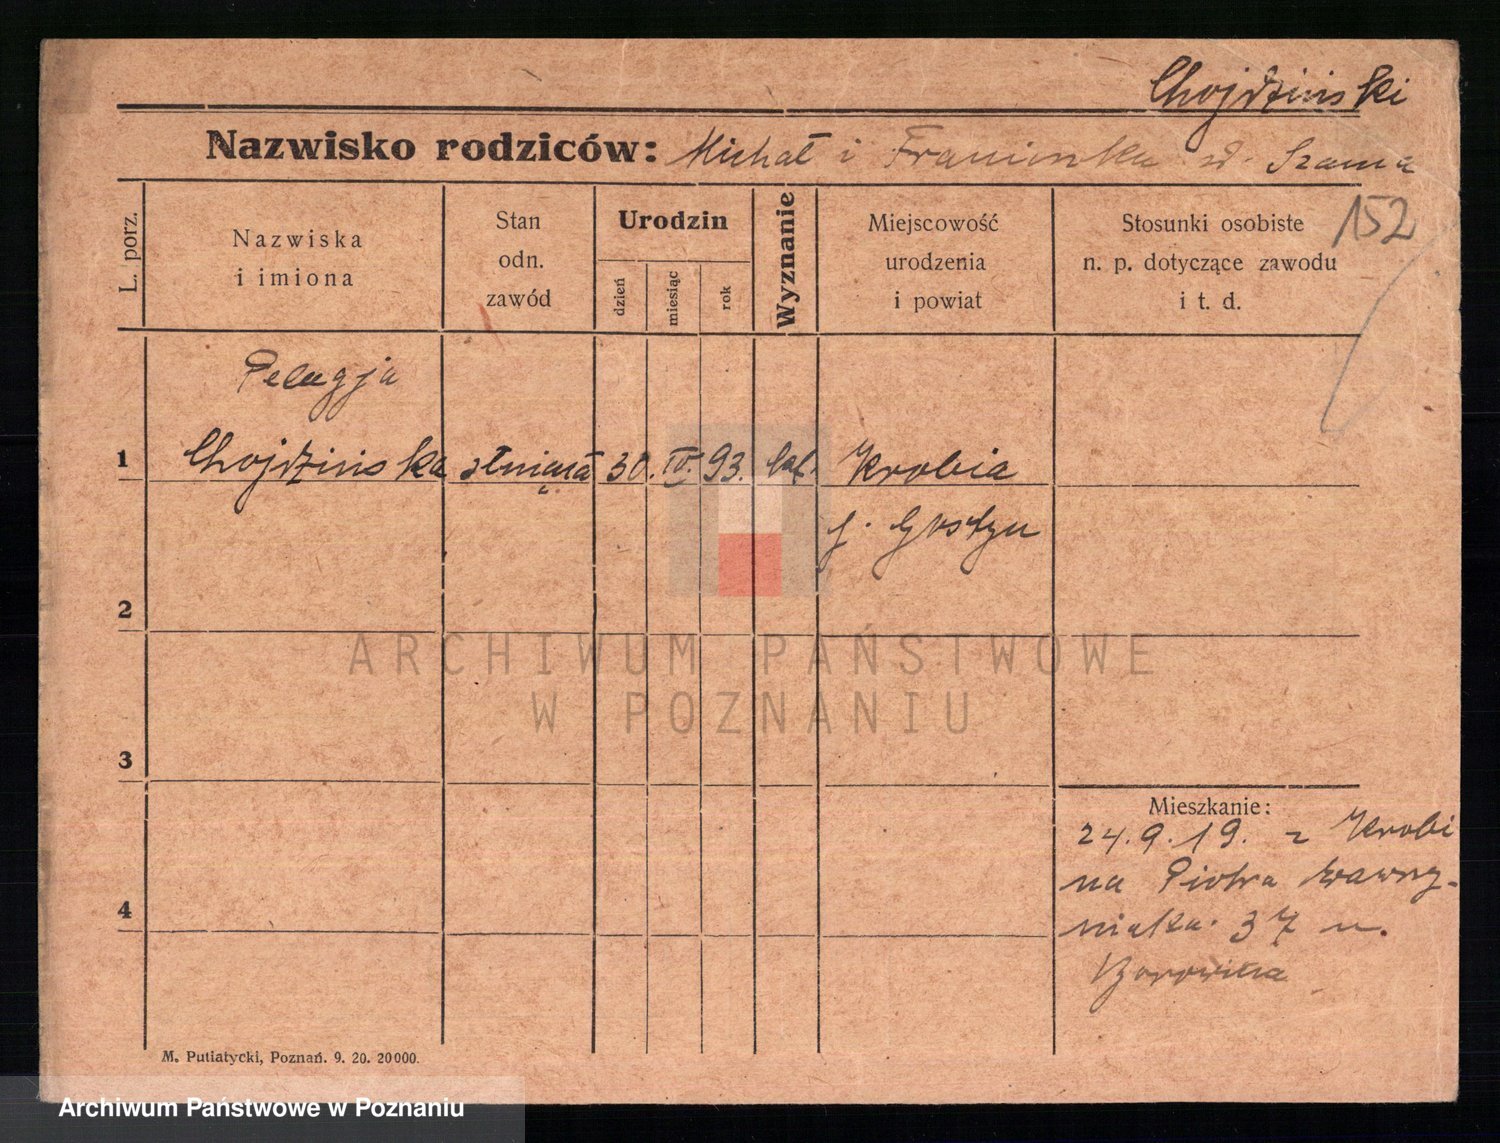 Chojdziński
Nazwisko rodziców: Michał i Franciszka
152
L. porz.
Nazwiska
i imiona
Stan
odn.
zawód
Urodzin
dzień
miesiąc
rok
Wyznanie
Miejscowość
urodzenia
i powiat
Stosunki osobiste
n. p. dotyczące zawodu
i t. d.
Pelagja
1 Chojdzińska służąca 30. IV. 93. kat. Krobia
Gostyń
2
3
4
Mieszkanie:
24.9.19. z Krobi
na Piotra Wawrzy-
niaka 37 u.
M. Putiatycki, Poznań. 9. 20. 20000.
ARCHIWUM PAŃSTWOWE
W POZNANIU
Archiwum Państwowe w Poznaniu